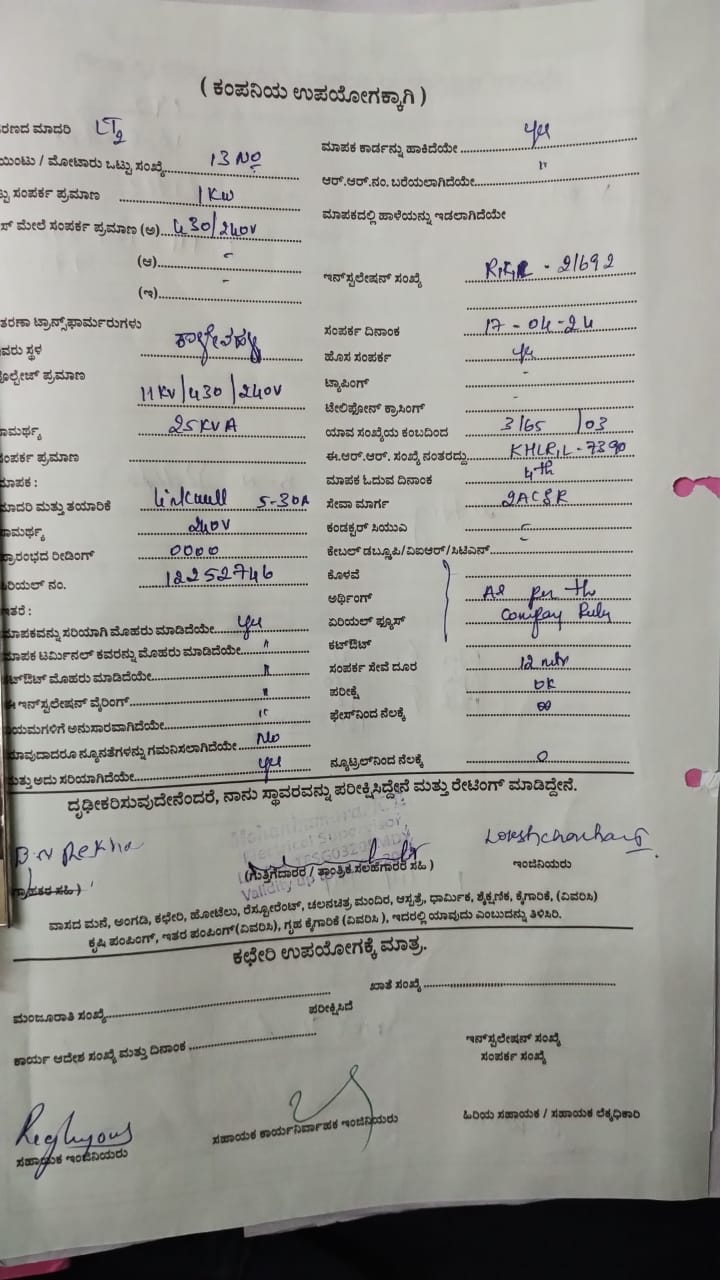 ( ಕಂಪನಿಯ ಉಪಯೋಗಕ್ಕಾಗಿ )
ರಣದ ಮಾದರಿ LT2
ಯಿಂಟು / ಮೋಟಾರು ಒಟ್ಟು ಸಂಖ್ಯೆ 13 No
ಟ್ಟು ಸಂಪರ್ಕ ಪ್ರಮಾಣ 1 KW
ಸ್ ಮೇಲೆ ಸಂಪರ್ಕ ಪ್ರಮಾಣ (ಅ) 430/240V
(ಆ) -
(ಇ) -
ತರಣಾ ಟ್ರಾನ್ಸ್‌ಫಾರ್ಮರುಗಳು
ವರು ಸ್ಥಳ
ವೋಲ್ಟೇಜ್ ಪ್ರಮಾಣ 11KV/430/240V
ಾಮರ್ಥ್ಯ 25KVA
ಸಂಪರ್ಕ ಪ್ರಮಾಣ
ಮಾಪಕ :
ಮಾದರಿ ಮತ್ತು ತಯಾರಿಕೆ 5-30A
ಾಮರ್ಥ್ಯ 240V
ಪ್ರಾರಂಭದ ರೀಡಿಂಗ್ 0000
ಸಿರಿಯಲ್ ನಂ. 12252746
ಇತರೆ :
ಮಾಪಕವನ್ನು ಸರಿಯಾಗಿ ಮೊಹರು ಮಾಡಿದೆಯೇ yes
ಮಾಪಕ ಟರ್ಮಿನಲ್ ಕವರನ್ನು ಮೊಹರು ಮಾಡಿದೆಯೇ "
ಟ್‌ಔಟ್ ಮೊಹರು ಮಾಡಿದೆಯೇ "
ಈ ಇನ್‌ಸ್ಟಲೇಷನ್ ವೈರಿಂಗ್ "
ಯಮಗಳಿಗೆ ಅನುಸಾರವಾಗಿದೆಯೇ "
ಯಾವುದಾದರೂ ನ್ಯೂನತೆಗಳನ್ನು ಗಮನಿಸಲಾಗಿದೆಯೇ No
ಮತ್ತು ಅದು ಸರಿಯಾಗಿದೆಯೇ yes
ಮಾಪಕ ಕಾರ್ಡನ್ನು ಹಾಕಿದೆಯೇ yes
ಆರ್.ಆರ್.ನಂ. ಬರೆಯಲಾಗಿದೆಯೇ "
ಮಾಪಕದಲ್ಲಿ ಹಾಳೆಯನ್ನು ಇಡಲಾಗಿದೆಯೇ
ಇನ್‌ಸ್ಟಲೇಷನ್ ಸಂಖ್ಯೆ - 21692
ಸಂಪರ್ಕ ದಿನಾಂಕ 17-04-24
ಹೊಸ ಸಂಪರ್ಕ yes
ಟ್ಯಾಪಿಂಗ್ -
ಟೆಲಿಫೋನ್ ಕ್ರಾಸಿಂಗ್ -
ಯಾವ ಸಂಖ್ಯೆಯ ಕಂಬದಿಂದ 3/65 /03
ಈ.ಆರ್.ಆರ್. ಸಂಖ್ಯೆ ನಂತರದ್ದು - 7390
ಮಾಪಕ ಓದುವ ದಿನಾಂಕ 4th
ಸೇವಾ ಮಾರ್ಗ 2ACSR
ಕಂಡಕ್ಟರ್ ಸಿಯುಎ
ಕೇಬಲ್ ಡಬ್ಲ್ಯೂಪಿ/ವಿಐಆರ್/ಸಿಟಿಎಸ್
ಕೊಳವೆ
ಅರ್ಥಿಂಗ್ As per the
ಏರಿಯಲ್ ಫ್ಯೂಸ್ Company Rules
ಕಟ್‌ಔಟ್
ಸಂಪರ್ಕ ಸೇವೆ ದೂರ 12 mtr
ಪರೀಕ್ಷೆ ok
ಫೇಸ್‌ನಿಂದ ನೆಲಕ್ಕೆ
ನ್ಯೂಟ್ರಲ್‌ನಿಂದ ನೆಲಕ್ಕೆ 0
ದೃಢೀಕರಿಸುವುದೇನೆಂದರೆ, ನಾನು ಸ್ಥಾವರವನ್ನು ಪರೀಕ್ಷಿಸಿದ್ದೇನೆ ಮತ್ತು ರೇಟಿಂಗ್ ಮಾಡಿದ್ದೇನೆ.
B.N Rekha
ಗ್ರಾಹಕರ ಸಹಿ )
(ಗುತ್ತಿಗೆದಾರರ / ತಾಂತ್ರಿಕ ಸಲಹೆಗಾರರ ಸಹಿ )
ಇಂಜಿನಿಯರು
ವಾಸದ ಮನೆ, ಅಂಗಡಿ, ಕಛೇರಿ, ಹೋಟೆಲು, ರೆಸ್ಟೋರೆಂಟ್, ಚಲನಚಿತ್ರ ಮಂದಿರ, ಆಸ್ಪತ್ರೆ, ಧಾರ್ಮಿಕ, ಶೈಕ್ಷಣಿಕ, ಕೈಗಾರಿಕೆ, (ವಿವರಿಸಿ)
ಕೃಷಿ ಪಂಪಿಂಗ್, ಇತರ ಪಂಪಿಂಗ್(ವಿವರಿಸಿ), ಗೃಹ ಕೈಗಾರಿಕೆ (ವಿವರಿಸಿ ), ಇದರಲ್ಲಿ ಯಾವುದು ಎಂಬುದನ್ನು ತಿಳಿಸಿರಿ.
ಕಛೇರಿ ಉಪಯೋಗಕ್ಕೆ ಮಾತ್ರ.
ಮಂಜೂರಾತಿ ಸಂಖ್ಯೆ
ಖಾತೆ ಸಂಖ್ಯೆ
ಪರೀಕ್ಷಿಸಿದೆ
ಕಾರ್ಯ ಆದೇಶ ಸಂಖ್ಯೆ ಮತ್ತು ದಿನಾಂಕ
ಇನ್‌ಸ್ಟಲೇಷನ್ ಸಂಖ್ಯೆ
ಸಂಪರ್ಕ ಸಂಖ್ಯೆ
ಸಹಾಯಕ ಇಂಜಿನಿಯರು
ಸಹಾಯಕ ಕಾರ್ಯನಿರ್ವಾಹಕ ಇಂಜಿನಿಯರು
ಹಿರಿಯ ಸಹಾಯಕ / ಸಹಾಯಕ ಲೆಕ್ಕಧಿಕಾರಿ